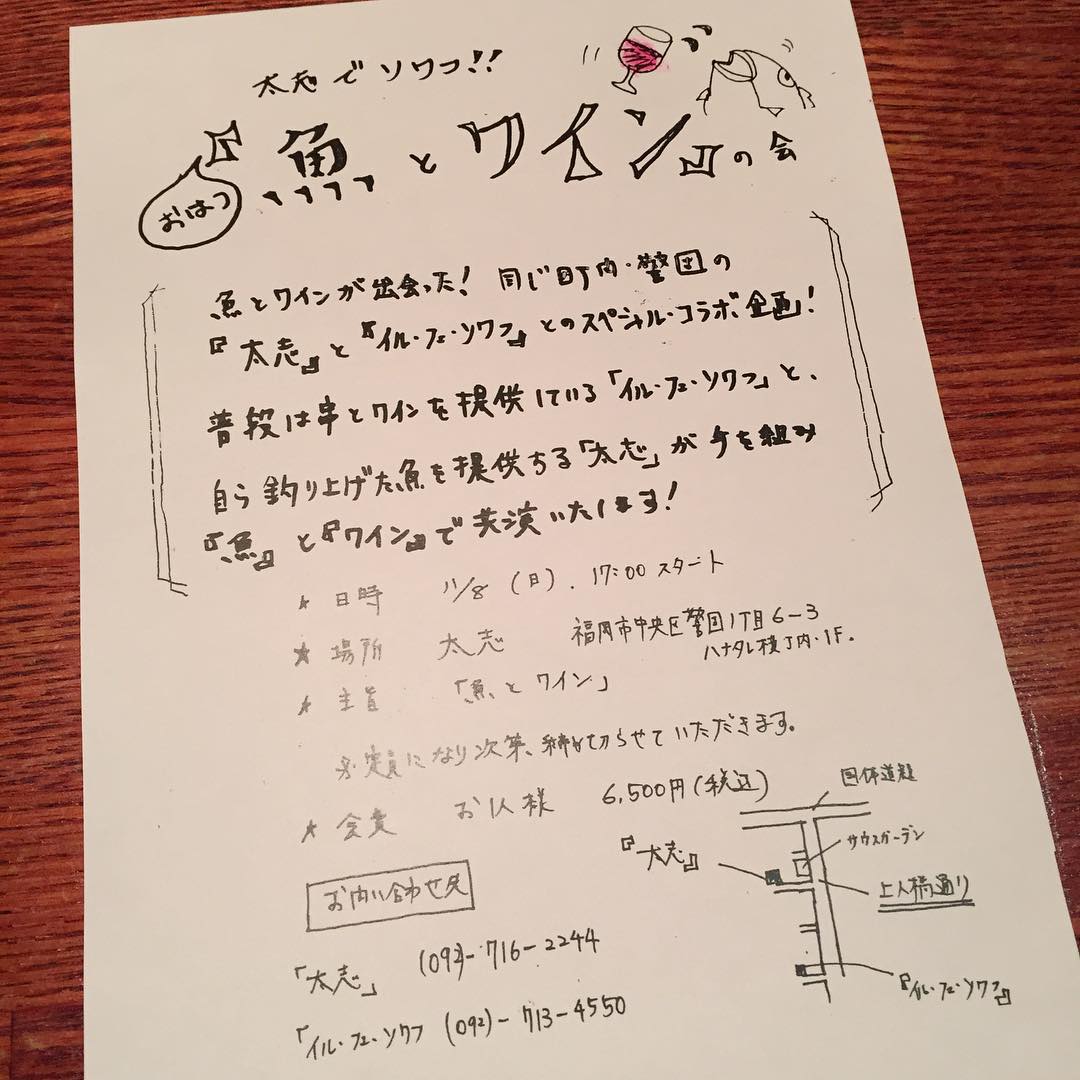 太志でソワフ!!
おはつ
『魚とワイン』の会
魚とワインが出会った! 同じ町内・警固の
『太志』と『イル・フェ・ソワフ』とのスペシャル・コラボ企画!
普段は串とワインを提供している「イル・フェ・ソワフ」と、
自ら釣り上げた魚を提供する「太志」が手を組み
『魚』と『ワイン』で共演いたします!
★ 日時 11/8 (日). 17:00 スタート
★ 場所 太志 福岡市中央区警固1丁目6-3
ハナタレ横丁内・1F.
★ 主旨 「魚とワイン」
※定員になり次第、締め切らせていただきます。
★ 会費 お1人様 6,500円(税込)
お問い合わせ先
「太志」 (092)-716-2244
「イル・フェ・ソワフ (092)-713-4550
国体道路
サウスガーデン
『太志』
上人橋通り
『イル・フェ・ソワフ』